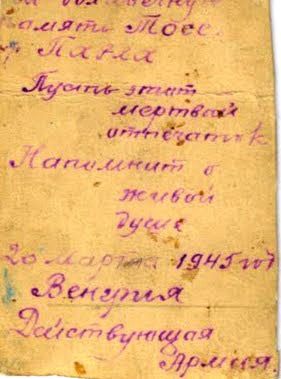 памяти Тосе.
Пусть этот
мертвой
отпечаток
Напомнит о
живой
душе
20 марта 1945 год
Венгрия
Действующая
Армия.